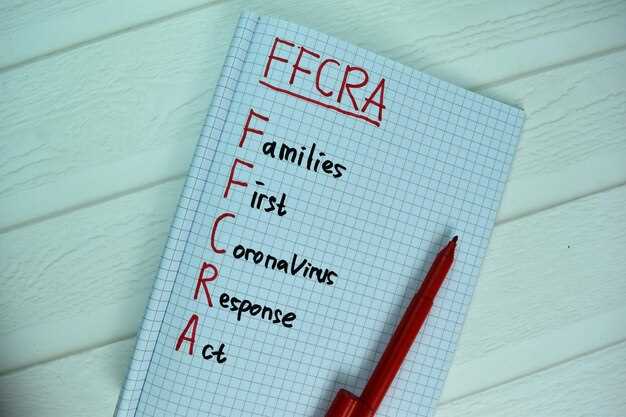 FFCRA
Families
First
CoronaVirus
Response
Act